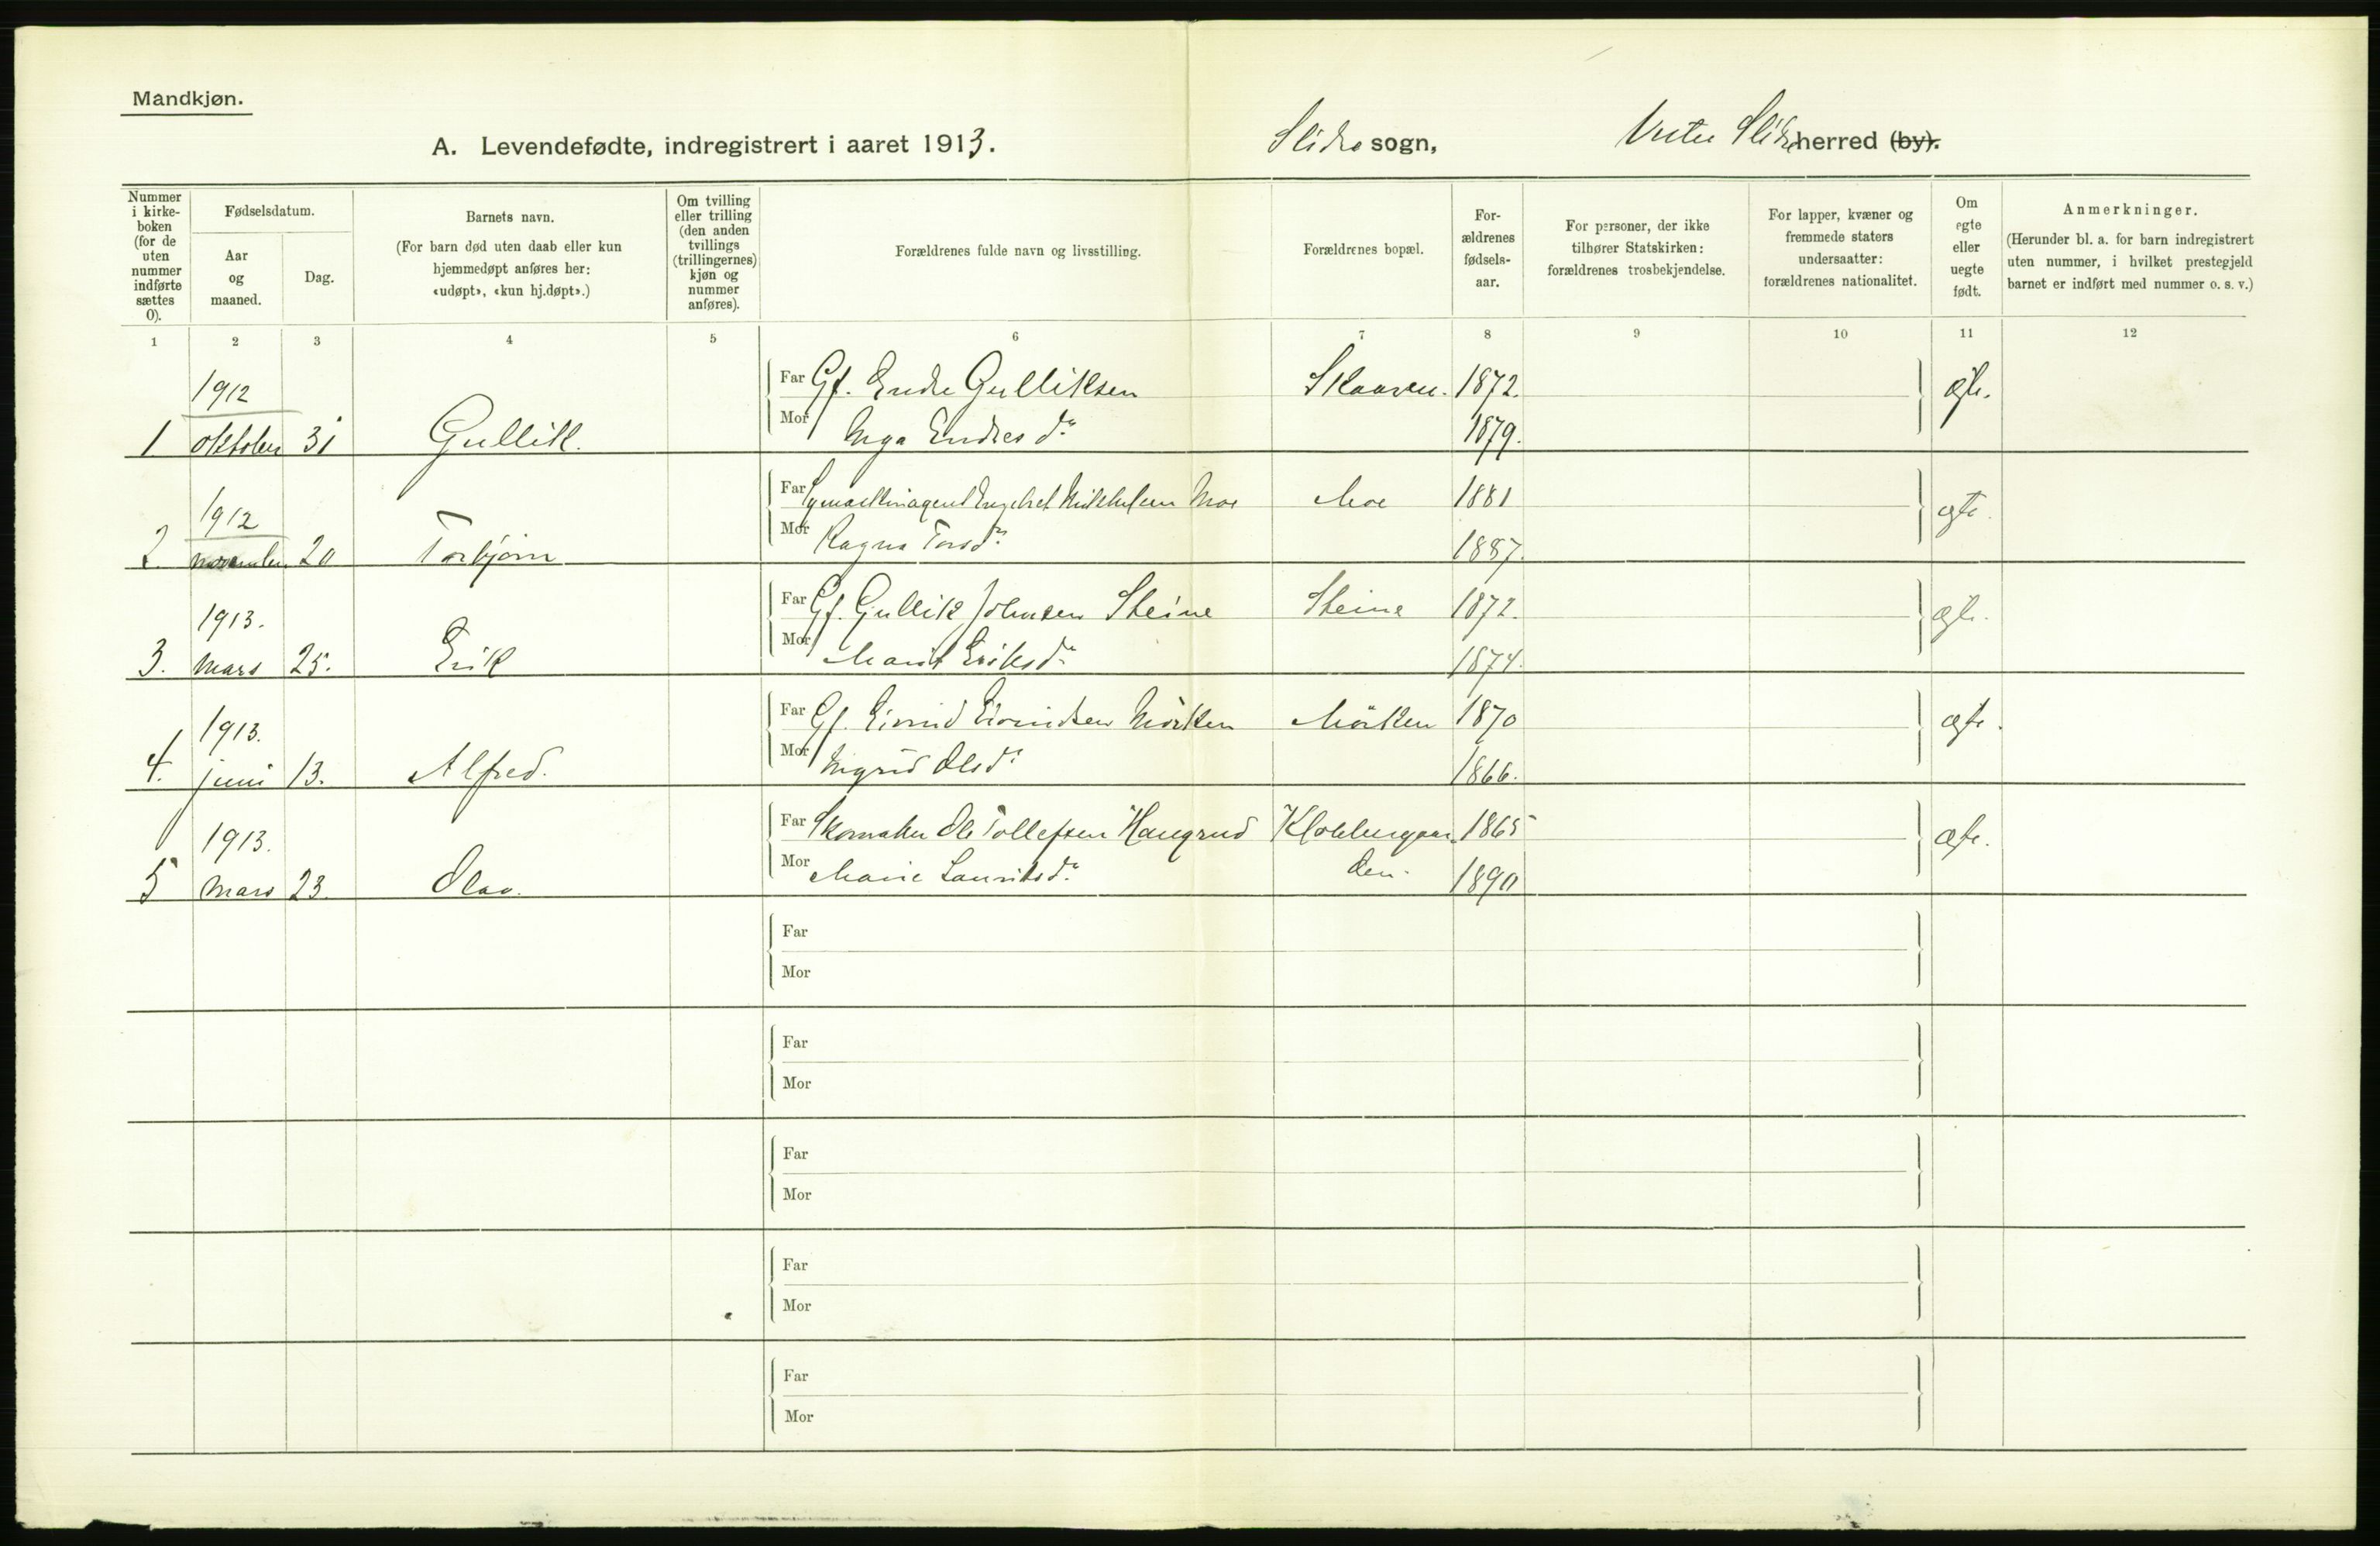 Mandkjøn.
A. Levendefødte, indregistrert i aaret 1913. Slidre sogn, Vestre Slidre herred (by).
Nummer i kirke-boken (for de uten nummer indførte sættes 0).
Fødselsdatum.
Aar og maaned.
Dag.
Barnets navn.
(For barn død uten daab eller kun hjemmedøpt anføres her: «udøpt», «kun hj.døpt».)
Om tvilling eller trilling (den anden tvillings (trillingernes) kjøn og nummer anføres).
Forældrenes fulde navn og livsstilling.
Forældrenes bopæl.
For-ældrenes fødsels-aar.
For personer, der ikke tilhører Statskirken: forældrenes trosbekjendelse.
For lapper, kvæner og fremmede staters undersaatter: forældrenes nationalitet.
Om egte eller uegte født.
Anmerkninger.
(Herunder bl. a. for barn indregistrert uten nummer, i hvilket prestegjeld barnet er indført med nummer o. s. v.)
1 2 3 4 5 6 7 8 9 10 11 12
1912 Far Gf. Endre Gulliksen Skaaren. 1872. egte.
1 oktober 31 Gullik. Mor Inga Endresdr. 1879.
1912 Far Symaskinagent Engebret Mikkelsen Moe Moe 1881 egte.
2. november 20 Torbjörn Mor Ragna Torsdr. 1887.
1913. Far Gf. Gullik Johnsen Steine Steine 1872. egte.
3. mars 25. Erik Mor Marit Eriksdr. 1874.
1913. Far Gf. Eivind Eivindsen Mörken Mörken 1870 egte.
4. juni 13. Alfred. Mor Ingrid Olsdr. 1866.
1913. Far Skomaker Ole Tollefsen Haugrud 1865 egte.
5 mars 23. Olav. Mor Marie Lauritsdr. den. 1890
Far
Mor
Far
Mor
Far
Mor
Far
Mor
Far
Mor